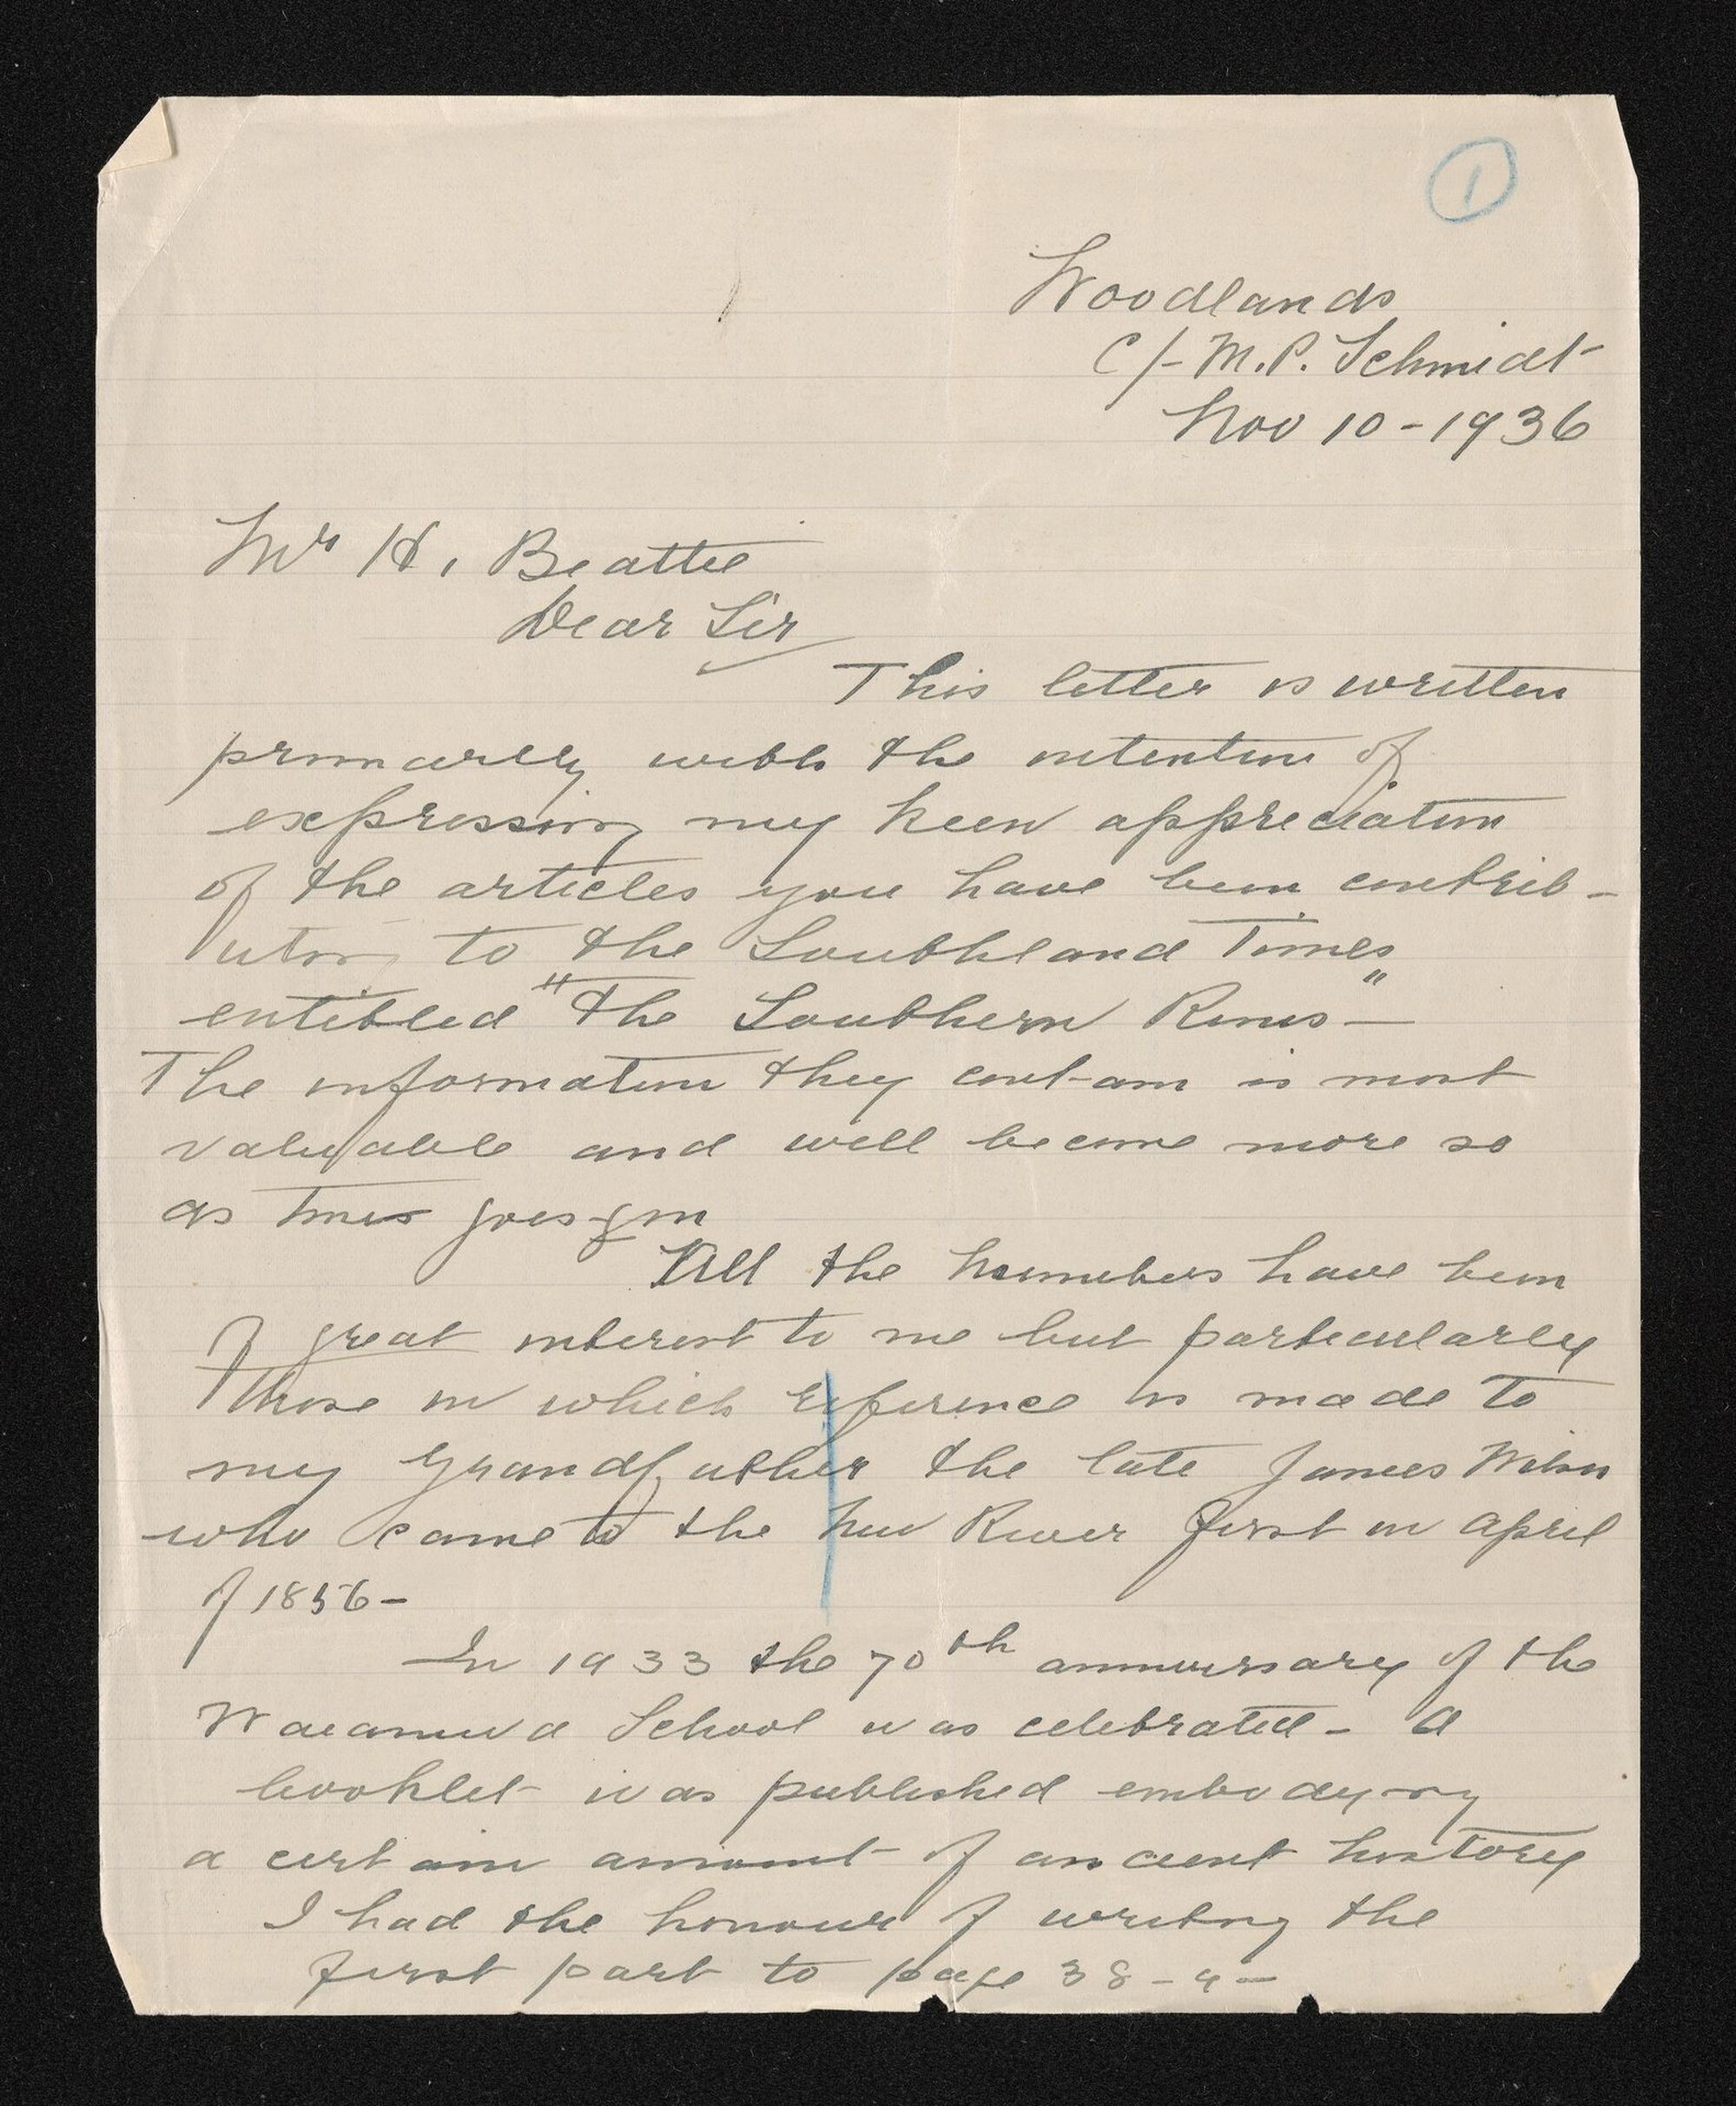 1
Woodlands
C/- M.P. Schmidt
Nov 10 - 1936
Mr H. Beattie
Dear Sir
This letter is written
primarily with the intention of
expressing my keen appreciation
of the articles you have been contrib-
uting to the Southland Times
entitled "The Southern Runs" -
The information they contain is most
valuable and will become more so
as times goes on
All the numbers have been
of great interest to me but particularly
those in which reference is made to
my Grandfather the late James Wilson
who came to the New River first in April
of 1856 -
In 1933 the 70th anniversary of the
Waianiwa School was celebrated - A
booklet was published embodying
a certain amount of ancient history
I had the honour of writing the
first part to page 38 - 9 -